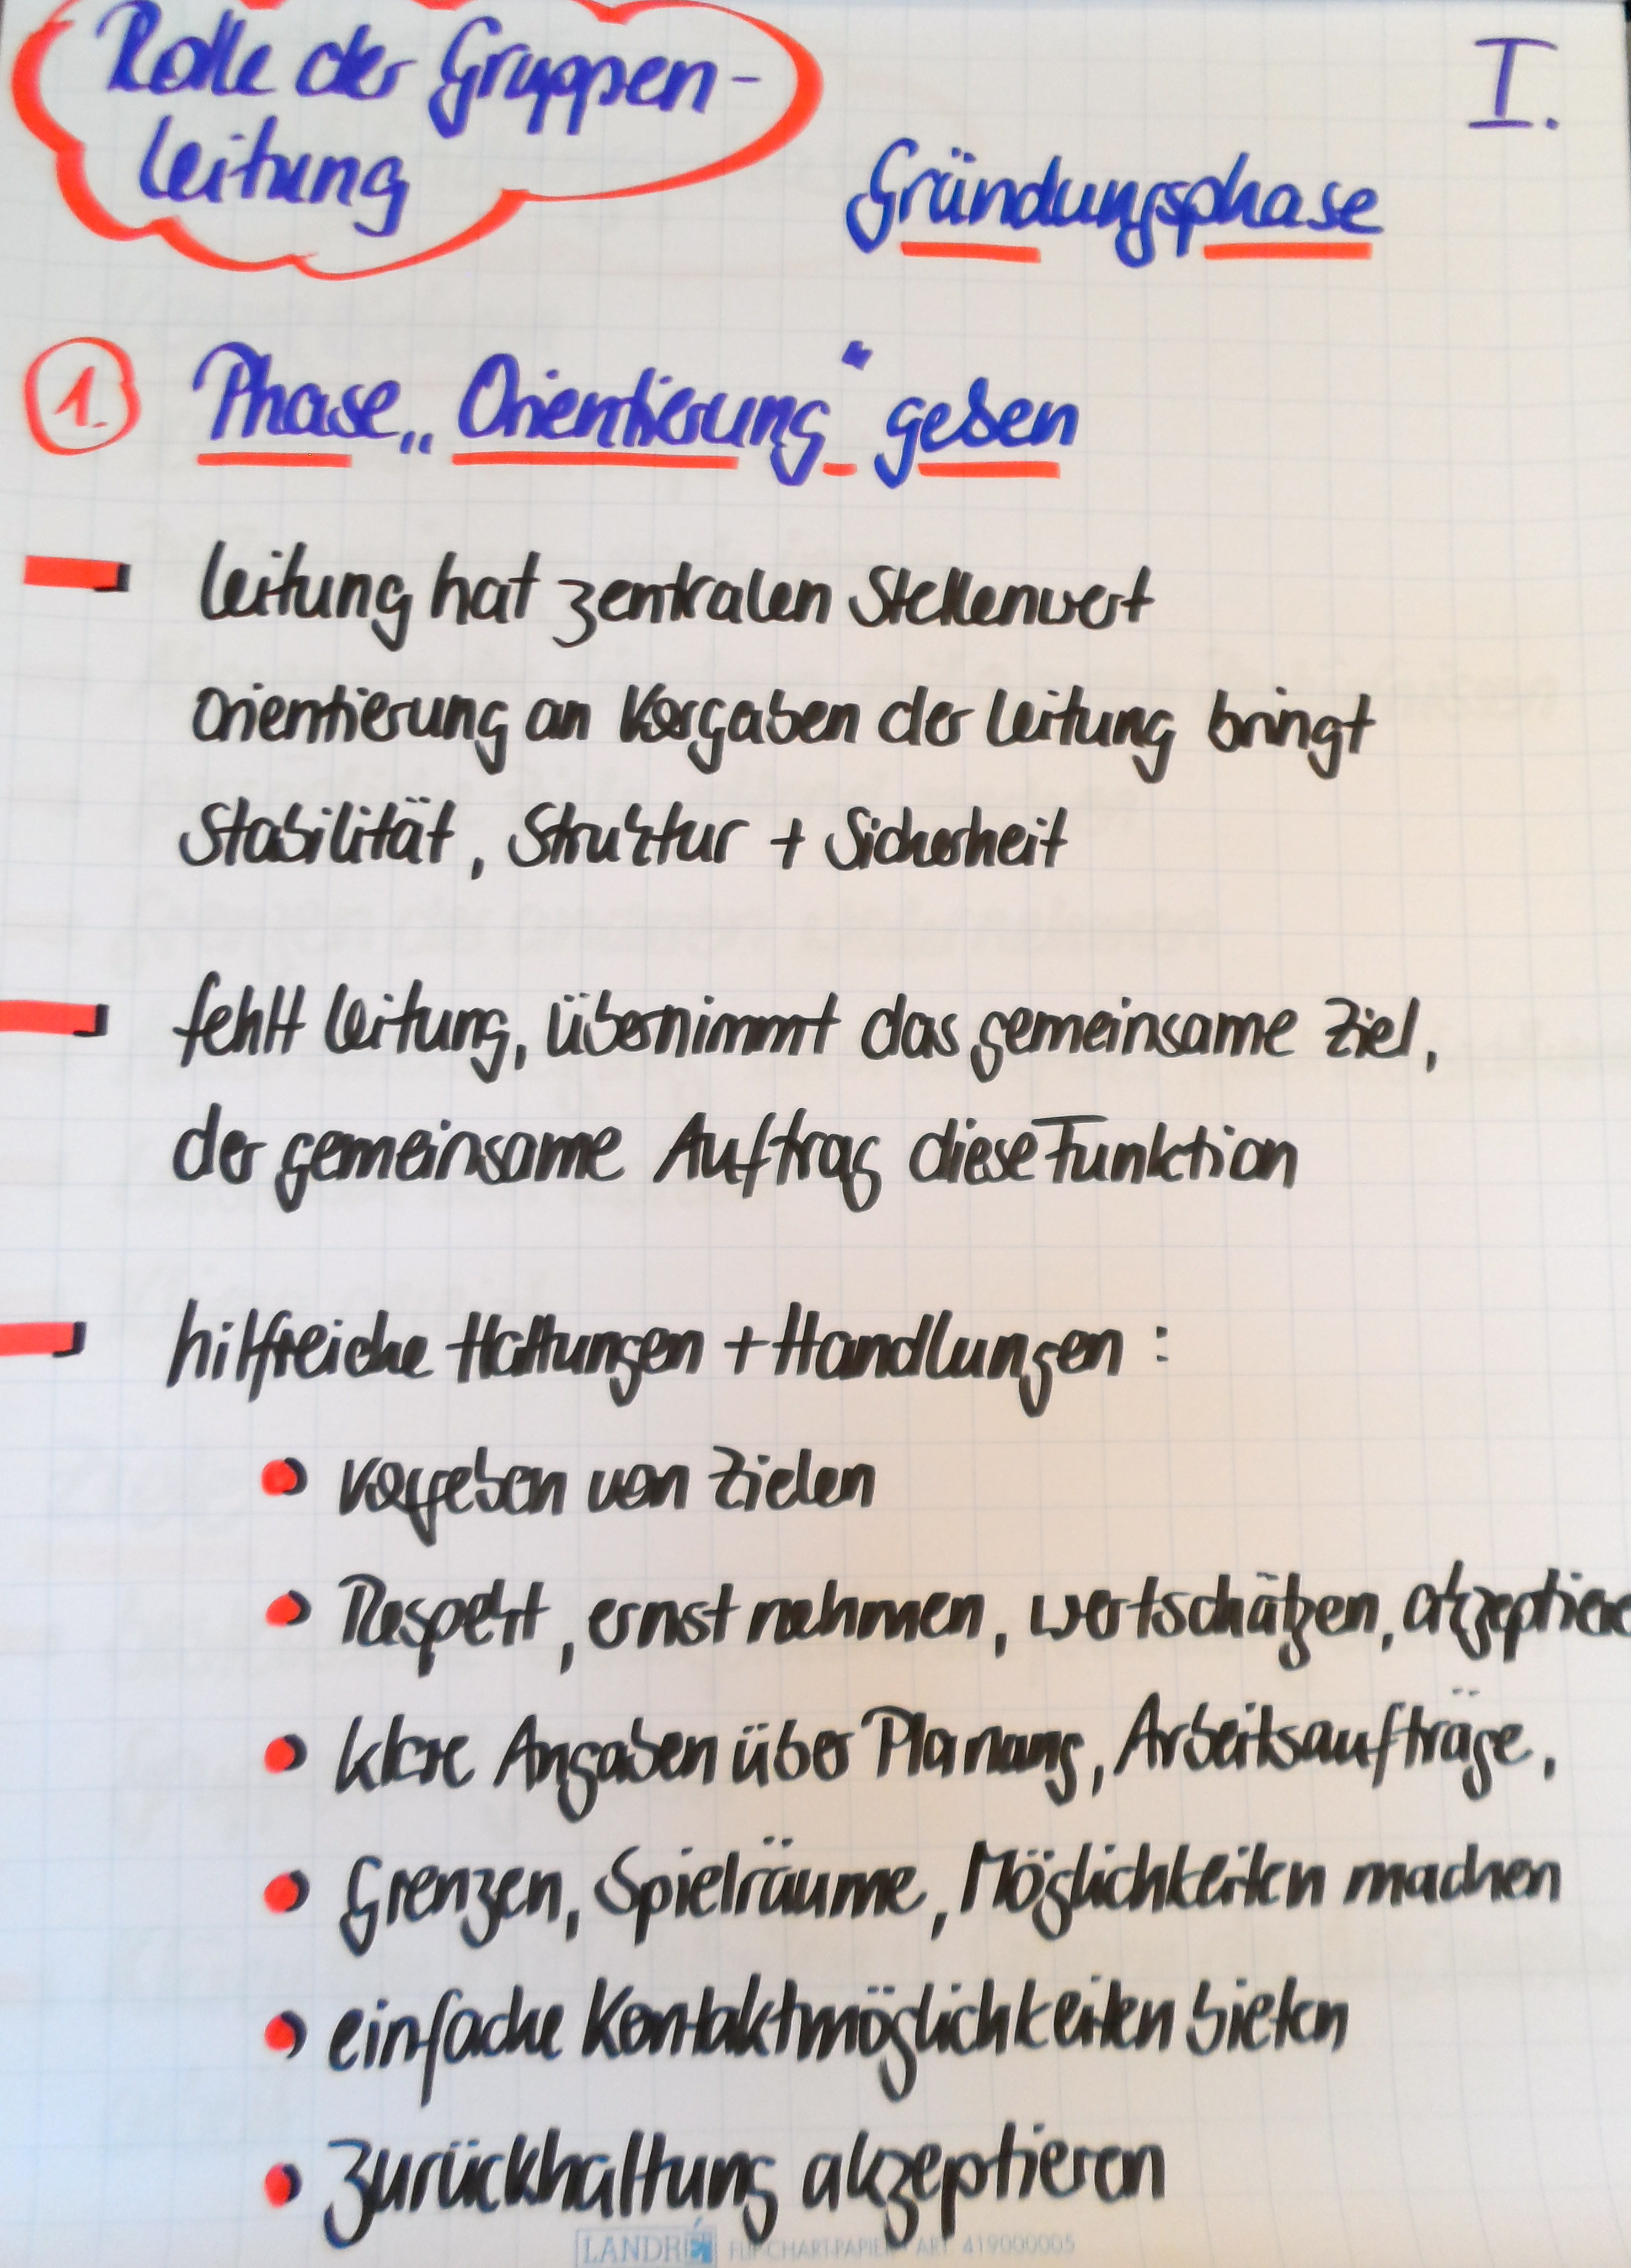 Rolle der Gruppen-
leitung
I.
Gründungsphase
1. Phase „Orientierung“ geben
Leitung hat zentralen Stellenwert
Orientierung an Vorgaben der Leitung bringt
Stabilität, Struktur + Sicherheit
fehlt Leitung, übernimmt das gemeinsame Ziel,
der gemeinsame Auftrag diese Funktion
hilfreiche Haltungen + Handlungen :
Vorgeben von Zielen
Respekt, ernst nehmen, wertschätzen, akzeptiere
klare Angaben über Planung, Arbeitsaufträge,
Grenzen, Spielräume, Möglichkeiten machen
einfache Kontaktmöglichkeiten bieten
Zurückhaltung akzeptieren
LANDRÉ FLIPCHART-PAPIER ART. 419000005